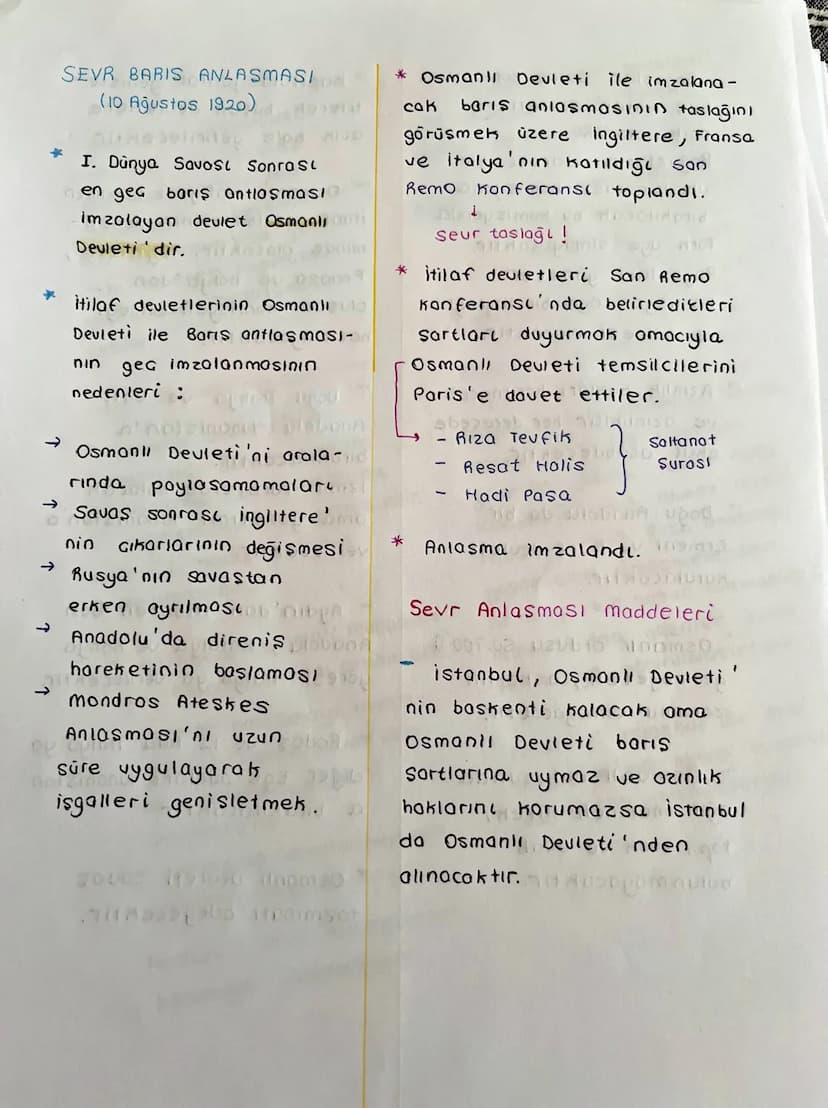 SEVR BARIS ANLASMASI
(10 Ağustos 1920)
* I. Dünya Savası Sonrası
en geç barış antlaşması
imzalayan devlet Osmanlı
Devleti'dir.
* İtilaf devletlerinin Osmanlı
Devleti ile Barış antlaşması-
nın geç imzalanmasının
nedenleri :
→ Osmanlı Devleti'ni arala-
rında paylaşamamaları
→ Savaş sonrası ingiltere'
nin çıkarlarının değişmesi
→ Rusya'nın savastan
erken ayrılması
→ Anadolu'da direniş
hareketinin başlaması
→ Mondros Ateskes
Anlasması'nı uzun
süre uygulayarak
işgalleri genisletmek.
* Osmanlı Devleti ile imzalana-
cak barış anlaşmasının taslağını
görüşmek üzere ingiltere, Fransa
ve italya'nın katıldığı san
Remo Konferansı toplandı.
↓
sevr taslağı !
* itilaf devletleri San Remo
Konferansı'nda belirledikleri
şartları duyurmak amacıyla
Osmanlı Devleti temsilcilerini
Paris'e davet ettiler.
→ - Rıza Tevfik
- Resat Halis
- Hadi Pasa
} Saltanat
Şurası
* Anlasma imzalandı.
Sevr Anlasması maddeleri
- istanbul, Osmanlı Devleti'
nin baskenti kalacak ama
Osmanlı Devleti barış
şartlarına uymaz ve azınlık
haklarını korumazsa istanbul
da Osmanlı Devleti'nden
alınacaktır.